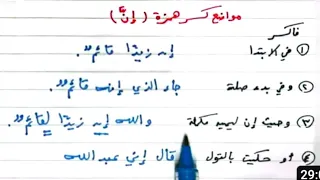 مواضع كسر همزة (إنّ)
فاكسر
① في الابتدا إن زيدًا قائم"
② وفي بدء صلة جاء الذي إنه قائم"
③ وحيث إن ليمين مكملة والله إن زيدًا لقائم"
④ أو حكيت بالقول قال إني عبد الله
29:0